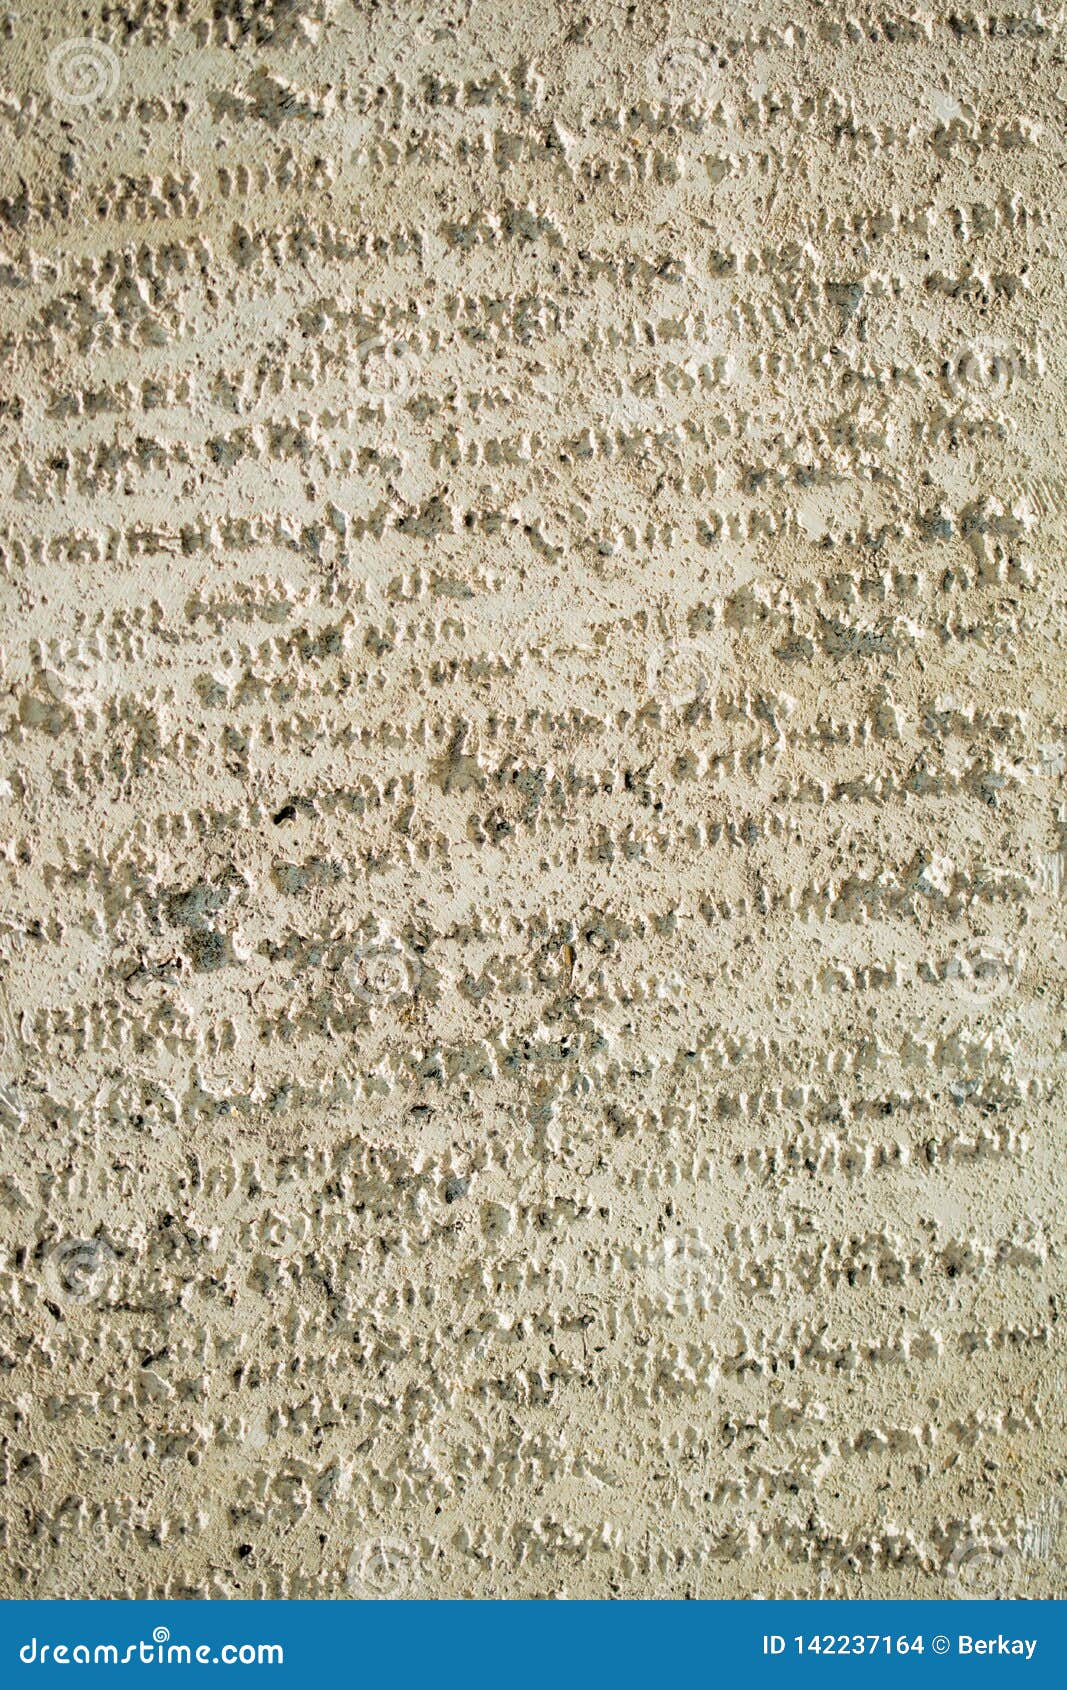 dreamstime.com
ID 142237164 © Berkay